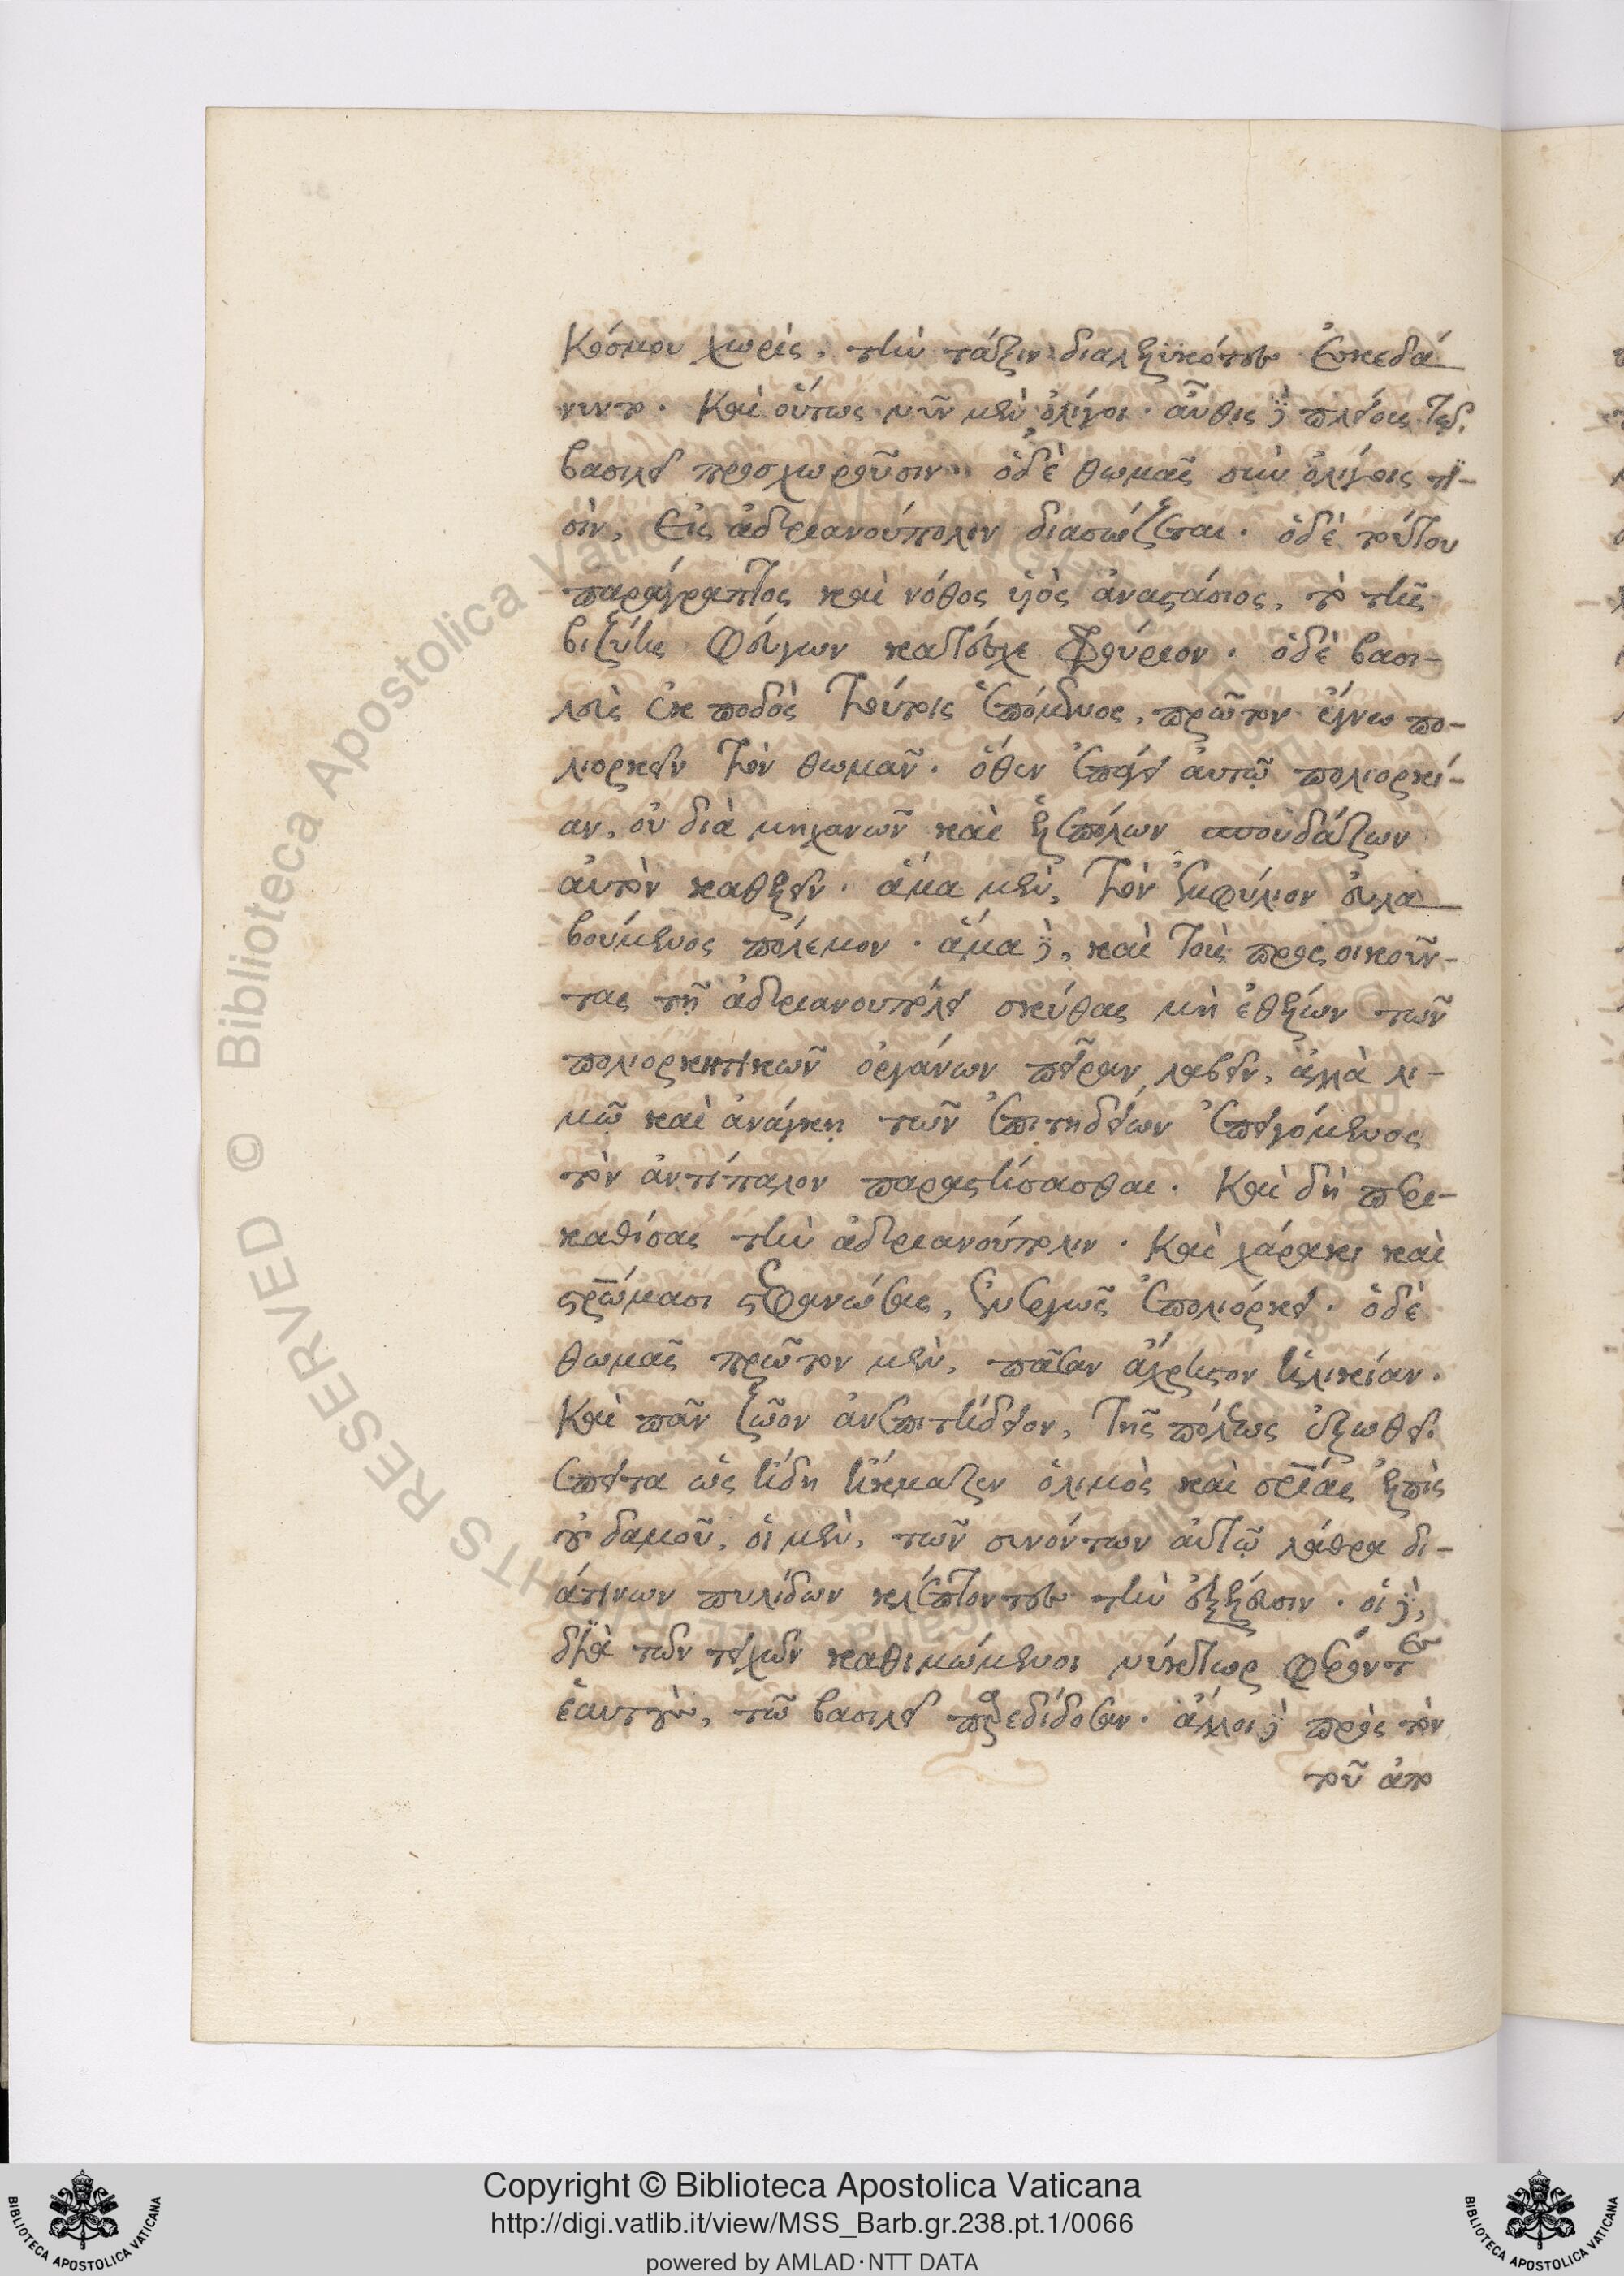 κόσμου χωρὶς, τὴν τάξιν διαλελυκότες ἐσκεδά
νυντο. Καὶ οὕτως νῦν μὲν ὀλίγοι. αὖθις δὲ πλείοις τῷ
βασιλεῖ προσχωροῦσιν. ὁδὲ θωμᾶς σὺν ὀλίγοις τι-
σὶν, εἰς ἀδριανούπολιν διασώζεται. ὁδὲ τούτου
παράγραπτος καὶ νόθος υἱὸς ἀναστάσιος, τὸ τῆς
βιζύης φεύγων κατέσχε φρούριον. ὁδὲ βασι-
λεὺς ἐκ ποδὸς τούτοις ἑπόμενος, πρῶτον ἔγνω πο-
λιορκεῖν τὸν θωμᾶν. ὅθεν ἐπάγει αὐτῷ πολιορκί-
αν, οὐ διὰ μηχανῶν καὶ ἑλεπόλεων σπουδάζων
αὐτὸν καθελεῖν. ἅμα μὲν, τὸν ἐμφύλιον εὐλα
βούμενος πόλεμον. ἅμα δὲ, καὶ τοὺς προσοικοῦν-
τας τῇ ἀδριανουπόλει σκύθας μὴ ἐθέλων τῶν
πολιορκητικῶν ὀργάνων πεῖραν λαβεῖν, ἀλλὰ λι-
μῷ καὶ ἀνάγκῃ τῶν ἐπιτηδείων ἐπειγόμενος
τὸν ἀντίπαλον παραστήσασθαι. Καὶ δὴ περι-
καθίσας τὴν ἀδριανούπολιν. Καὶ χάρακι καὶ
στρώμασι στεφανώσας, ἐνεργῶς ἐπολιόρκει. ὁδὲ
θωμᾶς πρῶτον μὲν, πᾶσαν ἄχρηστον ἡλικίαν.
Καὶ πᾶν ζῶον ἀνεπιτήδειον, τῆς πόλεως ἐξωθεῖ.
ἔπειτα ὡς ἤδη ἤκμαζεν ὁλιμὸς καὶ σωτηρίας ἐλπὶς
οὐδαμοῦ, οἱ μὲν, τῶν συνόντων αὐτῷ λάθρα δι-
άτινων πυλίδων κλέπτοντες τὴν ἐξέλευσιν. οἱ δὲ,
διὰ τῶν τειχῶν καθιμώμενοι νύκτωρ φέροντες
ἑαυτοὺς, τῷ βασιλεῖ παρεδίδοσαν. ἄλλοι δὲ πρὸς τὸν
τοῦ ἀπο
Copyright © Biblioteca Apostolica Vaticana
http://digi.vatlib.it/view/MSS_Barb.gr.238.pt.1/0066
powered by AMLAD·NTT DATA
BIBLIOTECA APOSTOLICA VATICANA
BIBLIOTECA APOSTOLICA VATICANA